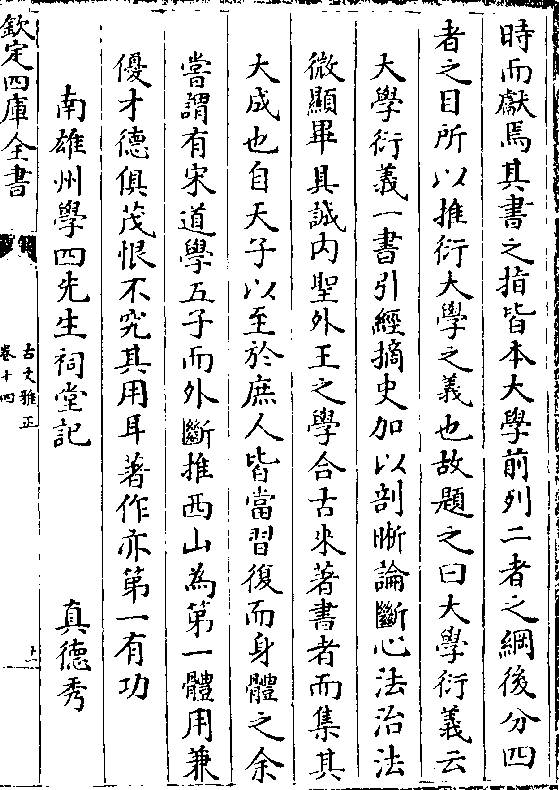 時而獻焉其書之指皆本大學前列二者之綱後分四
者之目所以推衍大學之義也故題之曰大學衍義云
大學衍義一書引經摘史加以剖晣論斷心法治法
微顯畢具誠内聖外王之學合古来著書者而集其
大成也自天子以至於庶人皆當習復而身體之余
嘗謂有宋道學五子而外斷推西山為第一體用兼
優才德俱茂恨不究其用耳著作亦第一有功
南雄州學四先生祠堂記 真德秀
欽定四庫全書
古文雅正
卷十四